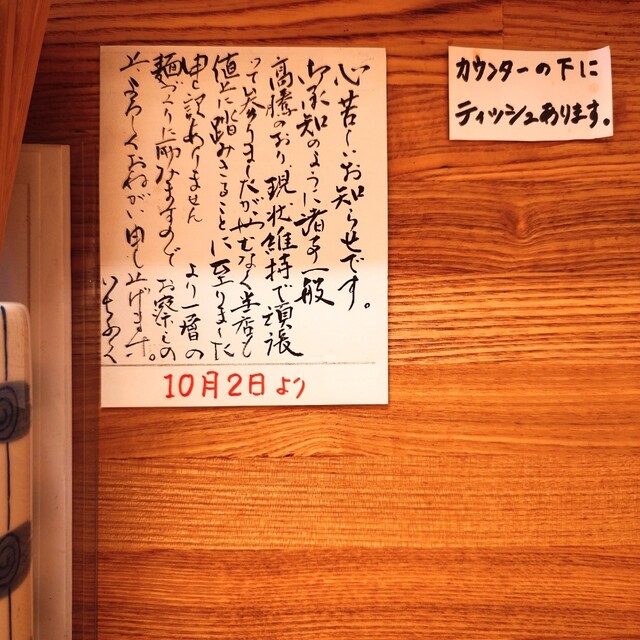 心苦しいお知らせです。
御承知のように諸事一般
高騰のおり、現状維持で頑張
って参りましたが、やむなく当店も
値上に踏みきることに至りました
申し訳ありません より一層の
麺づくりに励みますので お客さまの
よろしくおねがい申し上げます。
いちふく
10月2日より
カウンターの下に
ティッシュあります。